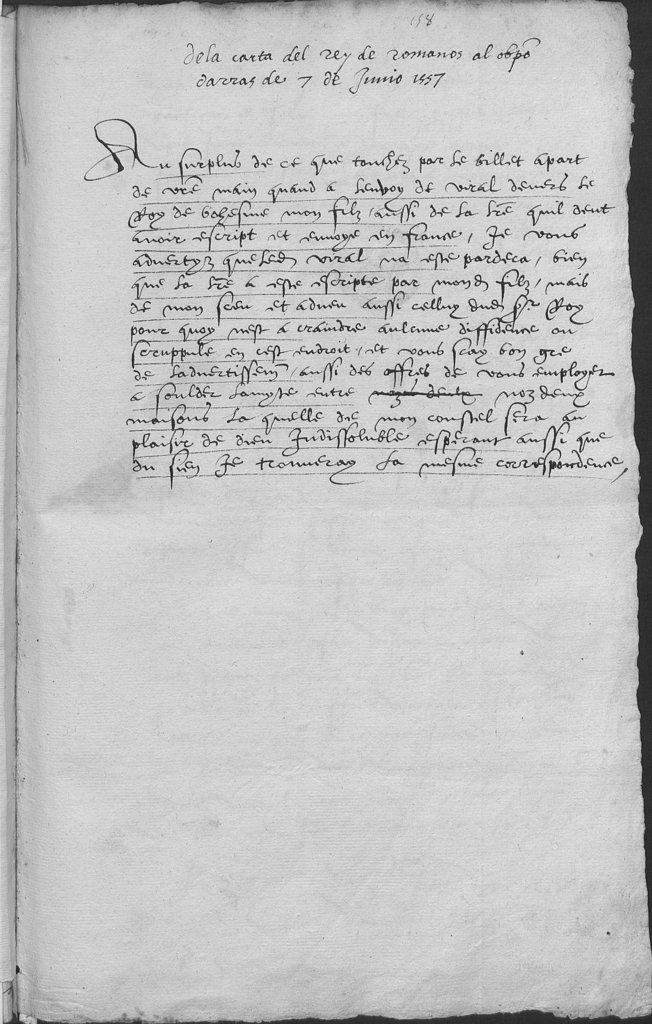 158
dela carta del rey de romanos al obpo
darras de 7 de Junio 1557
Au surplus de ce que touchez par le billet apart
de vre main quand a lenvoy de viral devers le
Roy de bohesme mon filz, aussi de la lre quil doit
avoir escript et envoye en france, Je vous
advertyz que led viral na este pardeca, bien
que la lre a este escripte par mond filz, mais
de mon sceu et adveu aussi celluy dud sr Roy
pour quoy nest a craindre aulcune diffidence ou
scruppule en cest endroit, et vous scay bon gre
de ladvertissemt, aussi des offres de vous employer
a soulder lamytie entre noz deux
maisons la quelle de mon coustel sera au
plaisir de dieu Indissoluble esperant aussi que
du sien Je trouveray la mesme correspondence,